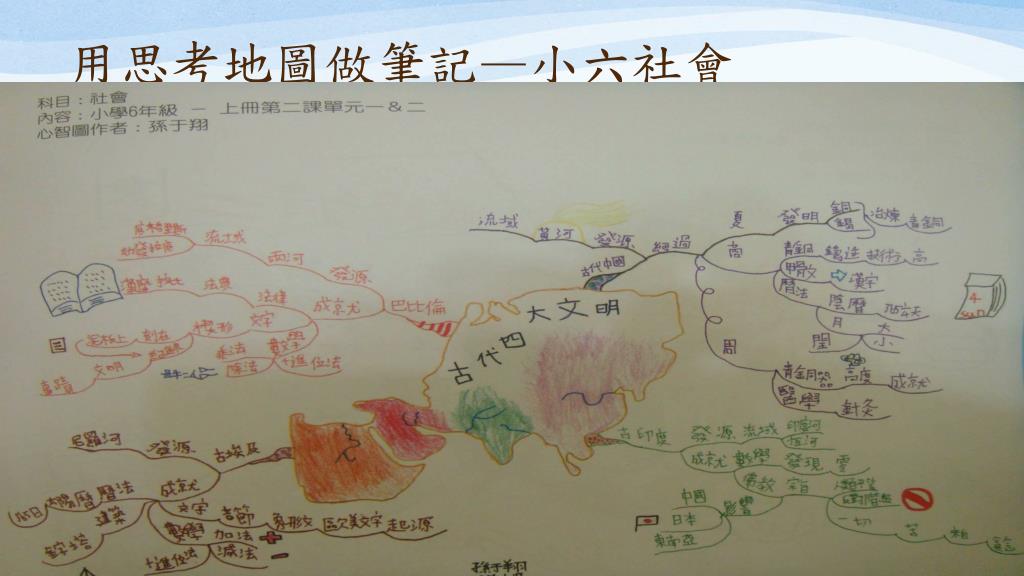 用思考地圖做筆記—小六社會
科目：社會
內容：小學6年級 － 上冊第二課單元一＆二
心智圖作者：孫于翔
古代四大文明
巴比倫
發源
兩河
流域
底格里斯
幼發拉底
成就
法律
法典
漢摩拉比
文字
楔形
刻在
泥板上
文明
事蹟
數學
乘法
除法
十進位法
古代中國
發源
黃河
流域
經過
夏
發明
銅
錫
冶煉
青銅
商
青銅
鑄造
技術
高
甲骨文
漢字
曆法
陰曆
月
大
小
閏
周
青銅器
高度
成就
醫學
針灸
4
sun
古埃及
發源
尼羅河
成就
曆法
太陽曆
365日
建築
文字
音節
象形文
歐美文字
起源
數學
加法
減法
十進位法
古印度
發源
流域
印度河
恆河
成就
數學
發現
零
佛教
影響
中國
日本
東南亞
一切
苦
孫于翔